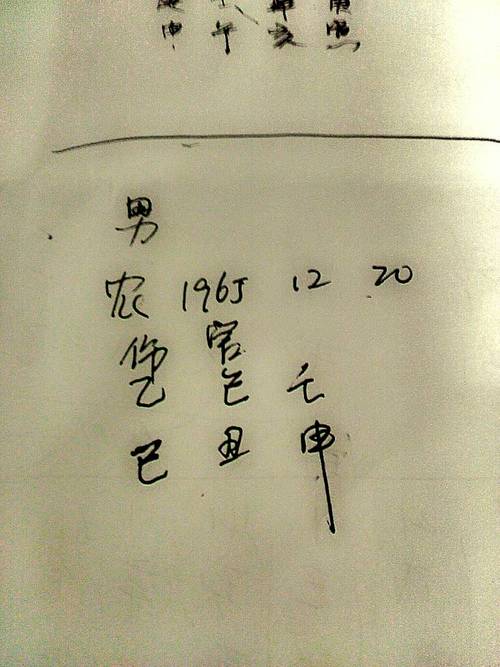 申 午 亥
男
农 1965 12 20
伤 官
乙 己 壬
巳 丑 申